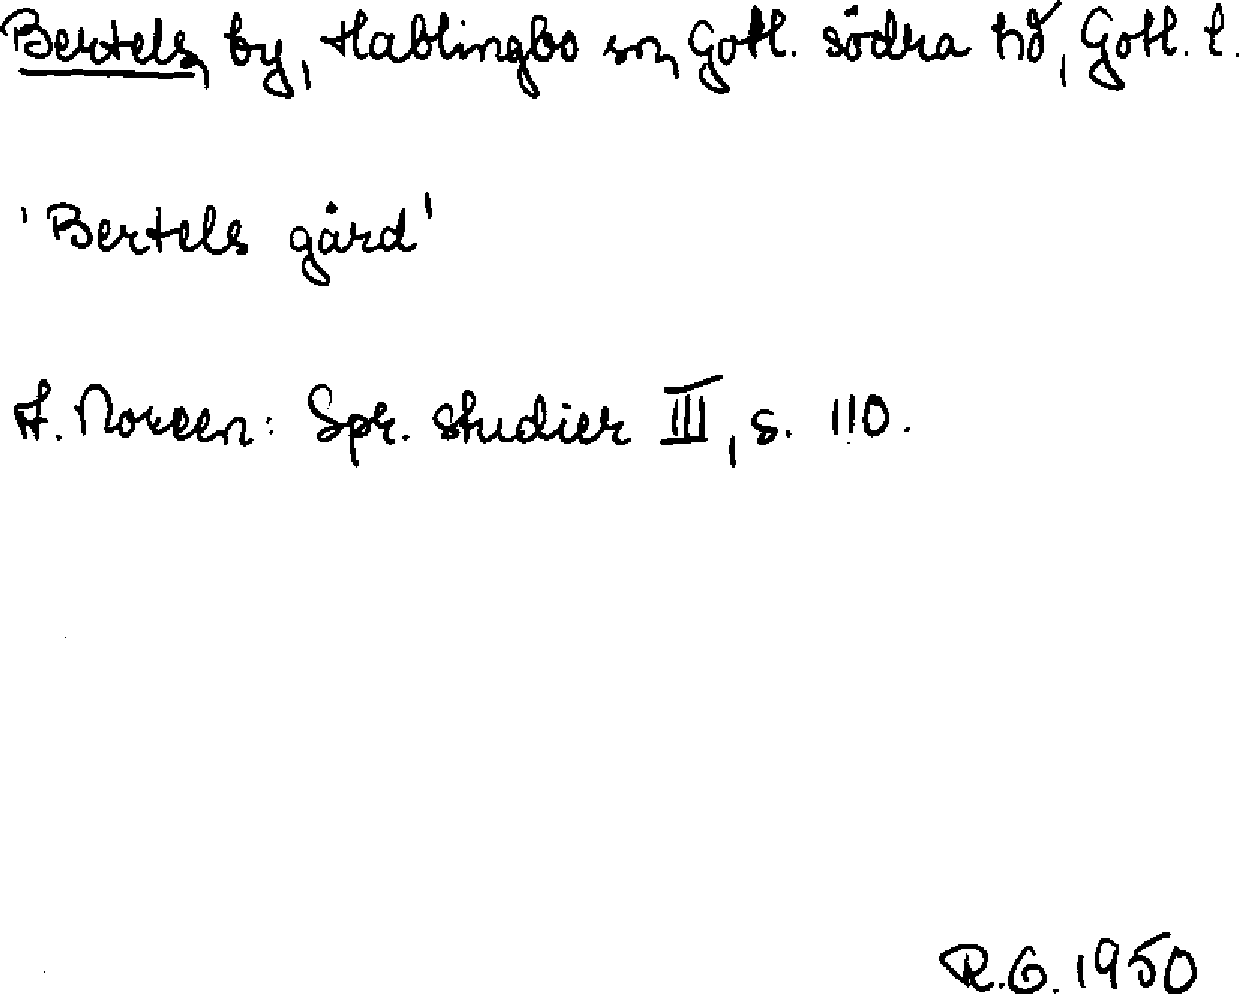 Bertels, by, Hablingbo sn, Gotl. södra hd, Gotl. l.
'Bertels gård'
A. Noreen: Spr. studier III, s. 110.
R.G. 1950